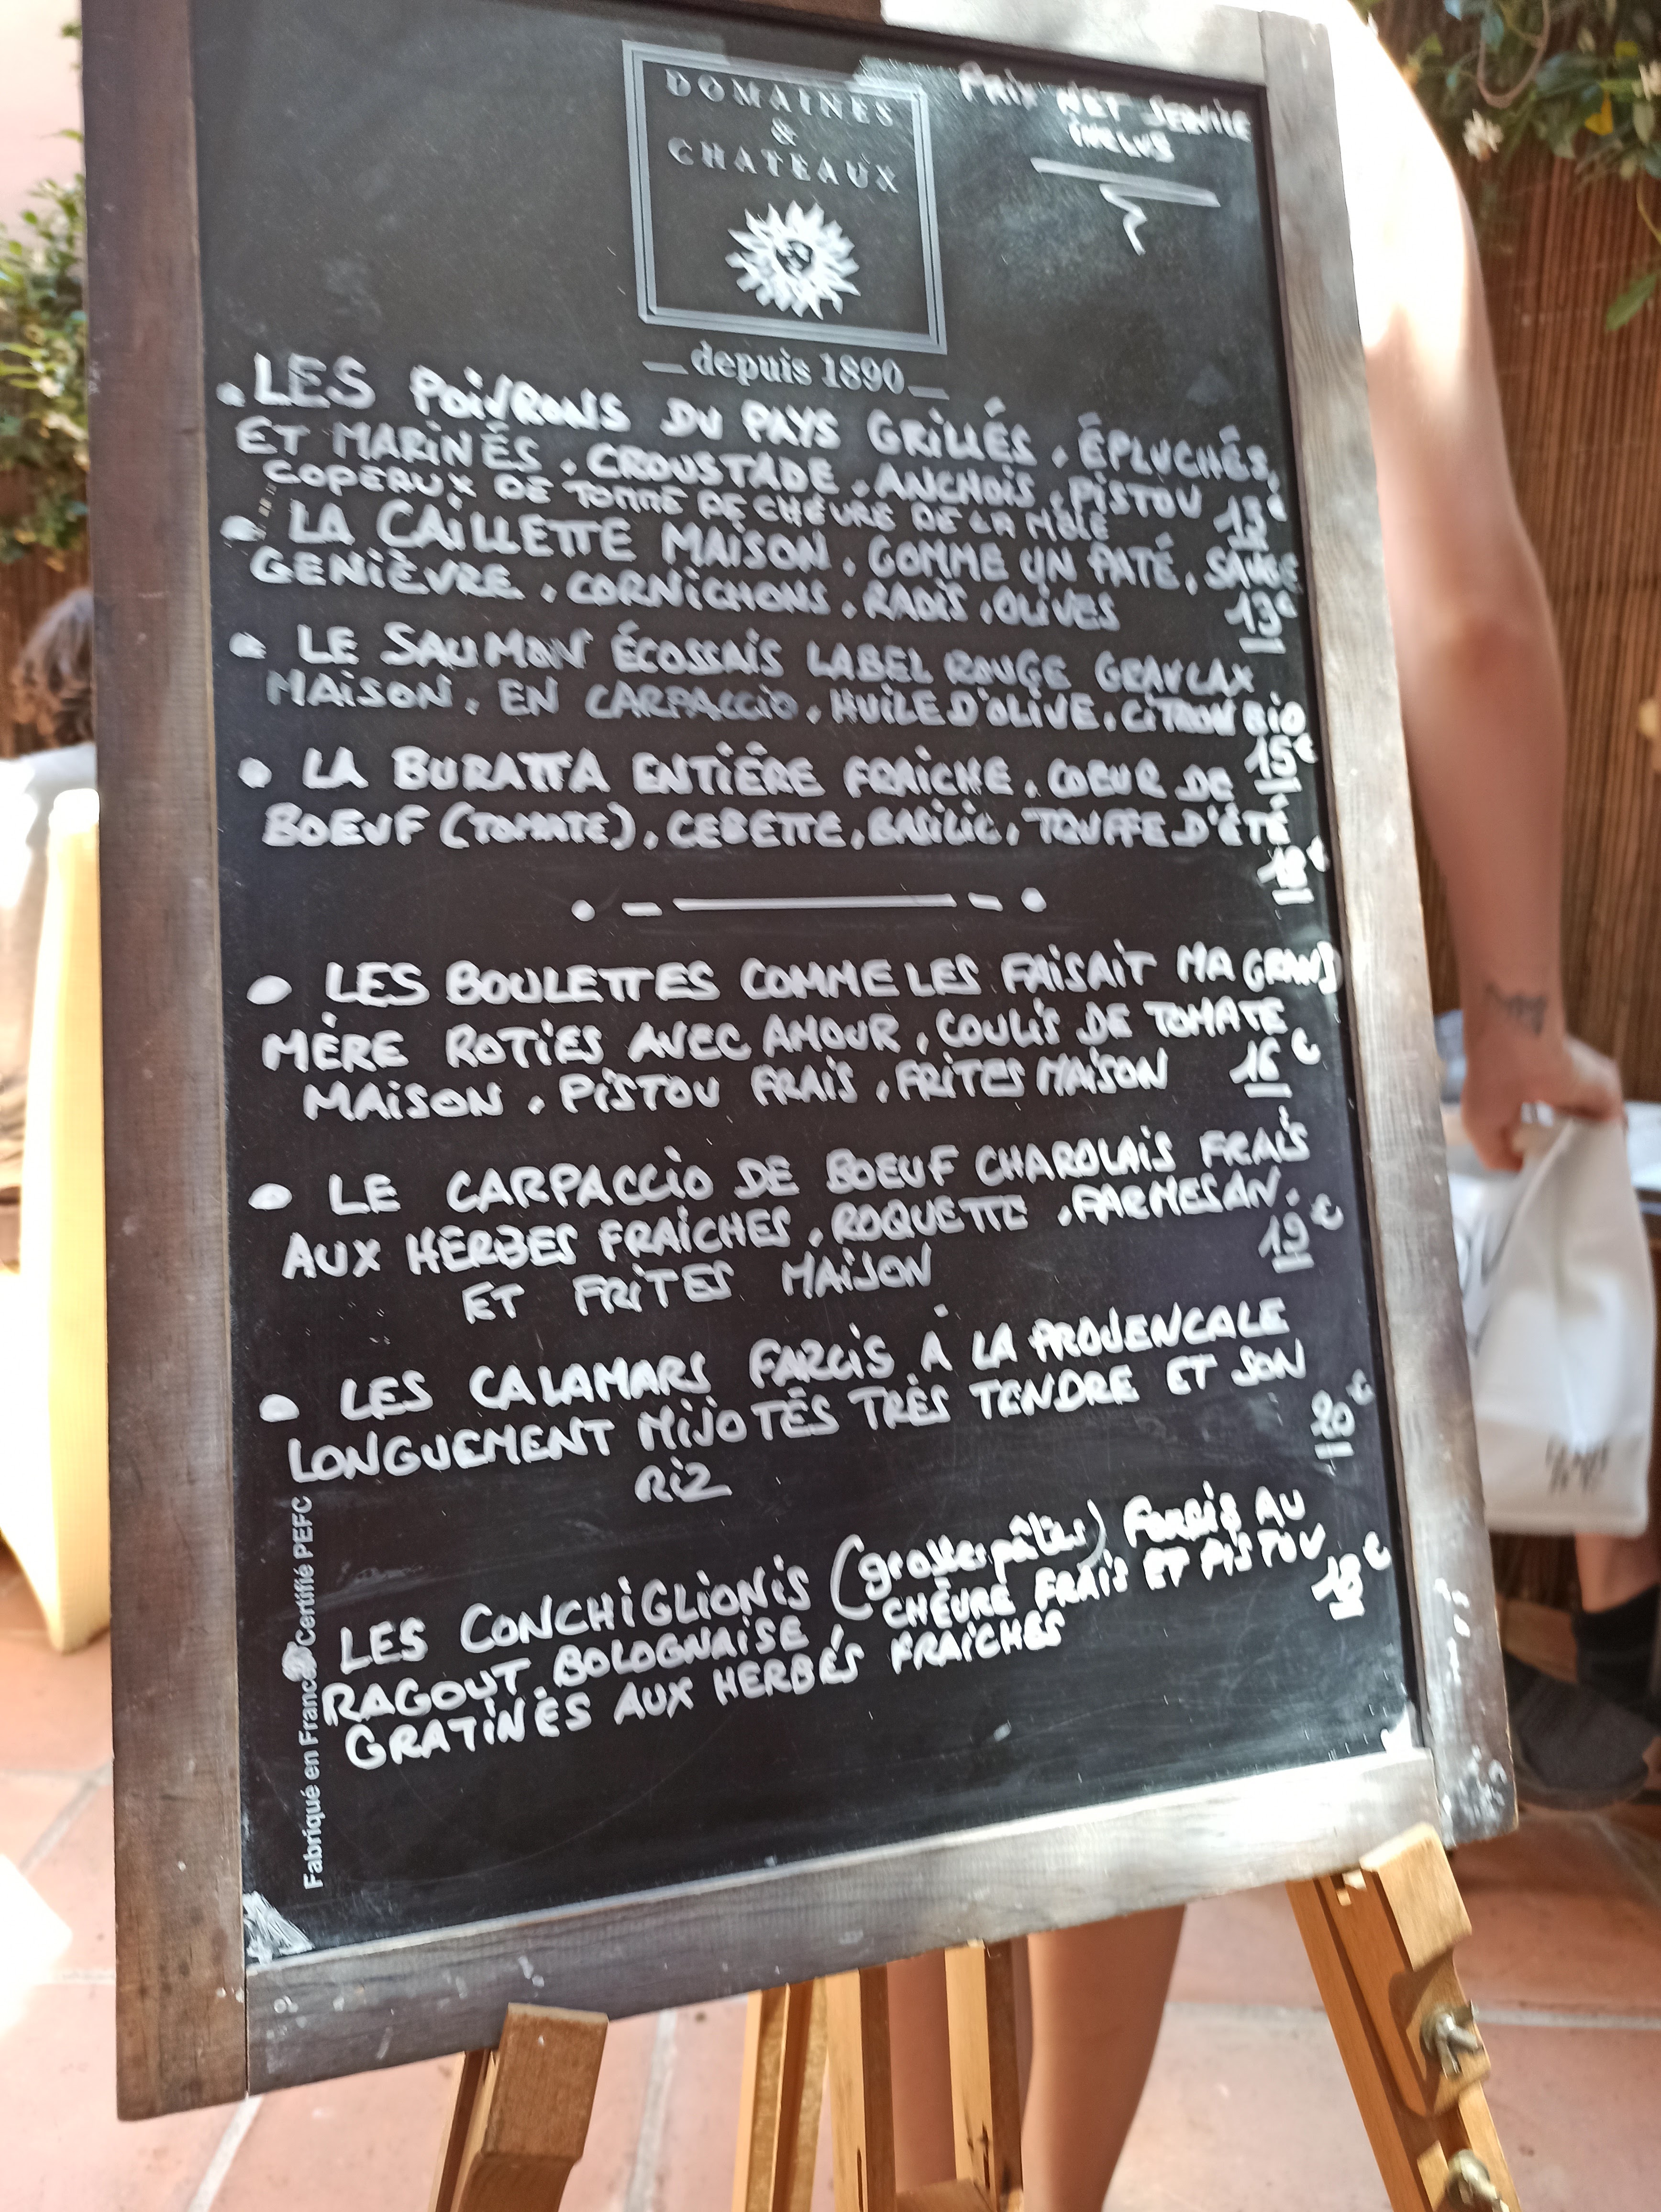 DOMAINES
&
CHATEAUX
depuis 1890
PRIX NET SERVICE
INCLUS
LES POIVRONS DU PAYS GRILLÉS, ÉPLUCHÉS,
ET MARINÉS, CROUSTADE, ANCHOIS, PISTOU
COPEAUX DE TOMME DE CHÈVRE DE LA MÔLE 13€
LA CAILLETTE MAISON, COMME UN PATÉ, SAUGE
GENIÈVRE, CORNICHONS, RADIS, OLIVES 13€
LE SAUMON ÉCOSSAIS LABEL ROUGE GRAVLAX
MAISON, EN CARPACCIO, HUILE D'OLIVE, CITRON BIO
15€
LA BURATTA ENTIÉRE FRAICHE, COEUR DE
BOEUF (TOMATE), CEBETTE, BASILIC, TOUFFE D'ÉTÉ
LES BOULETTES COMME LES FAISAIT MA GRAND
MÈRE ROTIES AVEC AMOUR, COULIS DE TOMATE
MAISON, PISTOU FRAIS, FRITES MAISON 16€
LE CARPACCIO DE BOEUF CHAROLAIS FRAIS
AUX HERBES FRAICHES, ROQUETTE, PARMESAN.
ET FRITES MAISON 19€
LES CALAMARS FARCIS À LA PROVENCALE
LONGUEMENT MIJOTÉS TRÉS TENDRE ET SON
RIZ 20€
LES CONCHIGLIONIS (grosses pâtes) FARCIS AU
RAGOUT BOLOGNAISE, CHÈVRE FRAIS ET PISTOU
GRATINÉS AUX HERBES FRAICHES 18€
Fabriqué en France Certifié PEFC